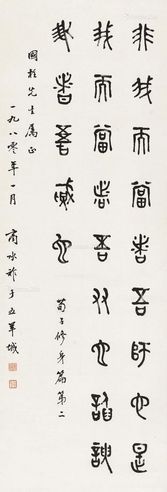 非我而當者吾師也是
我而當者吾友也諂諛
我者吾賊也 荀子修身篇第二
國 先生属正
一九八零年一月 商承祚于五羊城